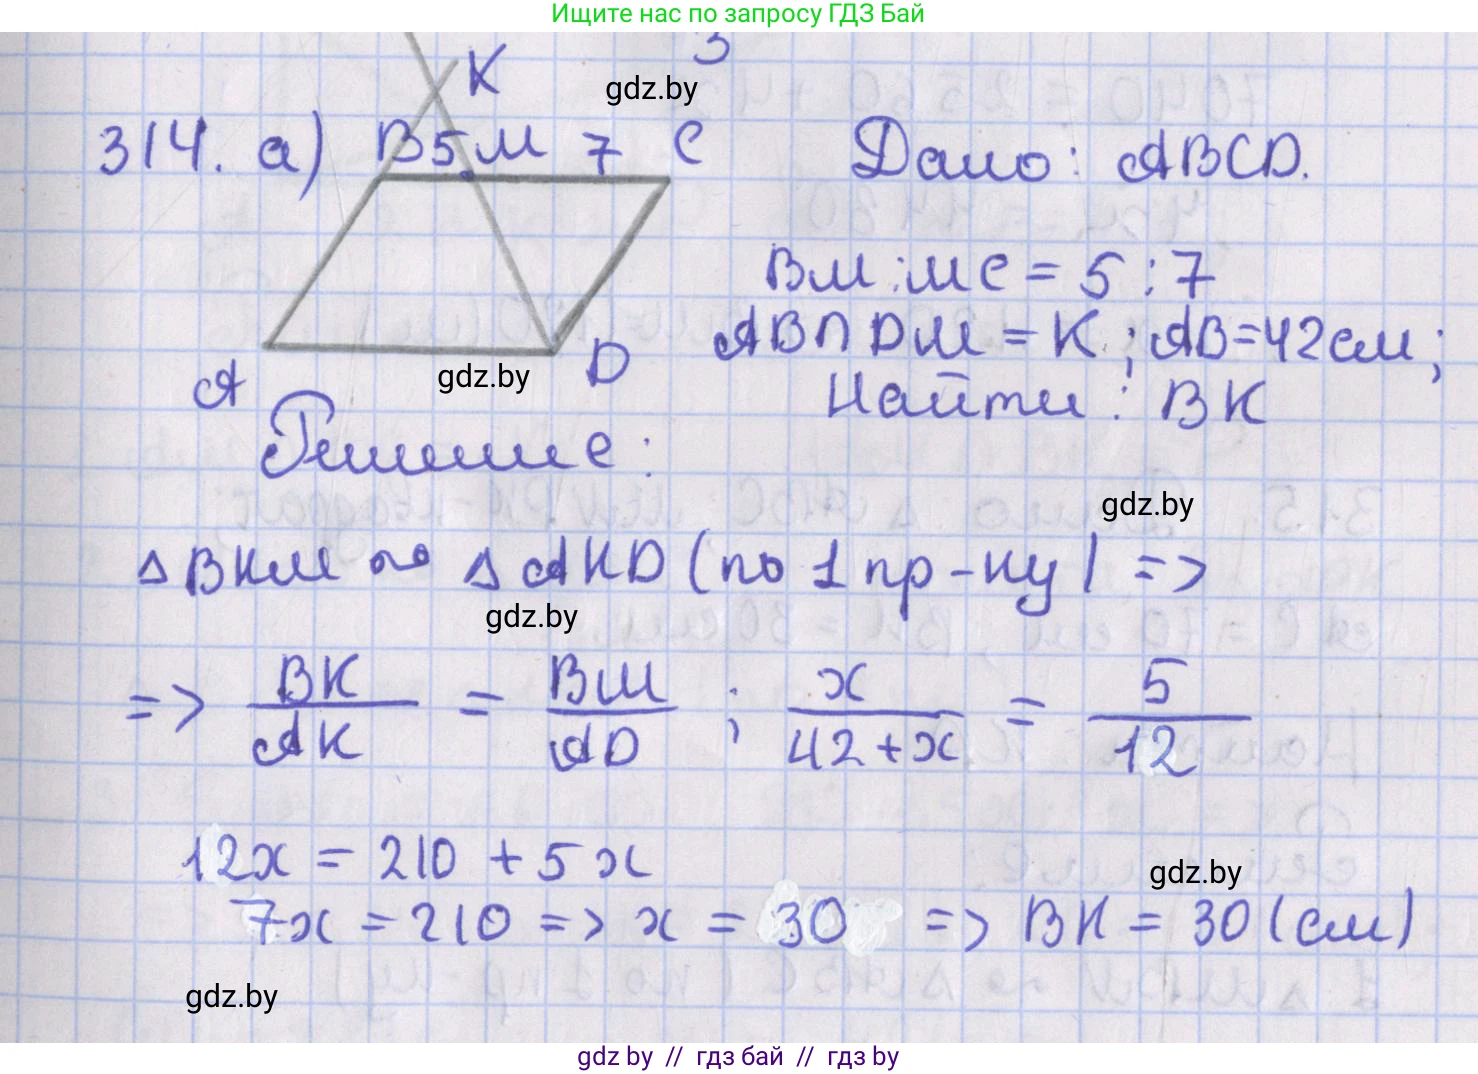 Ищите нас по запросу ГДЗ Бай
3
K
gdz.by
314. а) B 5 M 7 C
Дано: ABCD.
BM : MC = 5 : 7
AB ∩ DM = K ; AB = 42см ;
gdz.by
A D
Найти : BK
Решение :
gdz.by
△ BKM ∾ △ AKD (по 1 пр-ку) =>
gdz.by
=> BK/AK = BM/AD ; x/(42+x) = 5/12
12x = 210 + 5x
gdz.by
7x = 210 => x = 30 => BK = 30 (см)
gdz.by
gdz by // гдз бай // гдз by